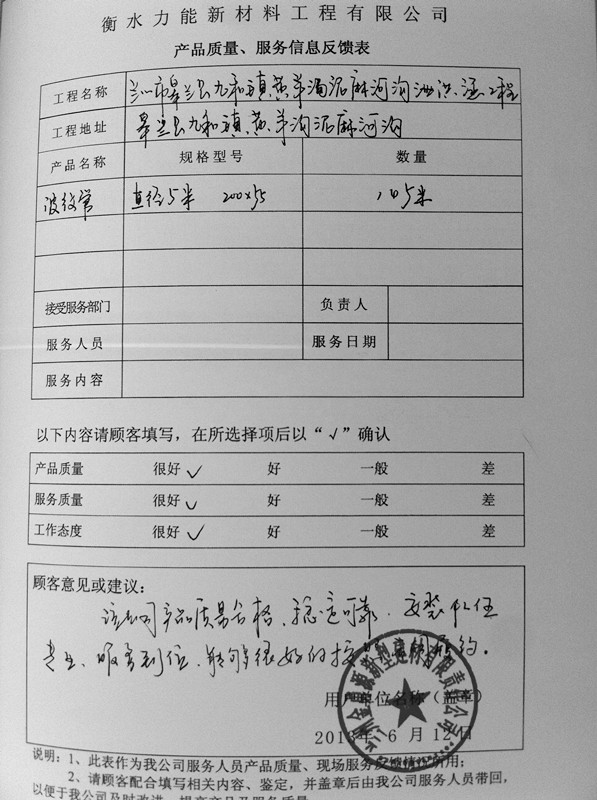 衡水力能新材料工程有限公司
产品质量、服务信息反馈表
工程名称 兰州市皋兰县九和镇黄茅沟泥麻河沟泄洪涵工程
工程地址 皋兰县九和镇黄茅沟泥麻河沟
产品名称 规格型号 数量
波纹管 直径5米 200×55 105米
接受服务部门 负责人
服务人员 服务日期
服务内容
以下内容请顾客填写，在所选择项后以“√”确认
产品质量 很好√ 好 一般 差
服务质量 很好√ 好 一般 差
工作态度 很好√ 好 一般 差
顾客意见或建议：
该公司产品质量合格、稳定可靠、安装队伍
专业、服务到位、能够很好的按
用户单位名称（盖章）
2018年6月12日
说明：1、此表作为我公司服务人员产品质量、现场服务反馈情况所用；
2、请顾客配合填写相关内容、鉴定，并盖章后由我公司服务人员带回，
以便于我公司及时改进、提高产品及服务质量